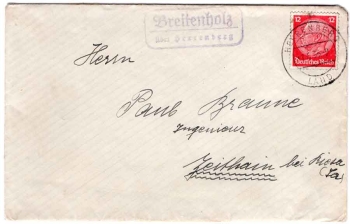 Breitenholz
über Herrenberg
12 12
Deutsches Reich
HERRENBERG
LAND
Herrn
Paul Braune
Ingenieur
Zeithain bei Riesa
(Sa)